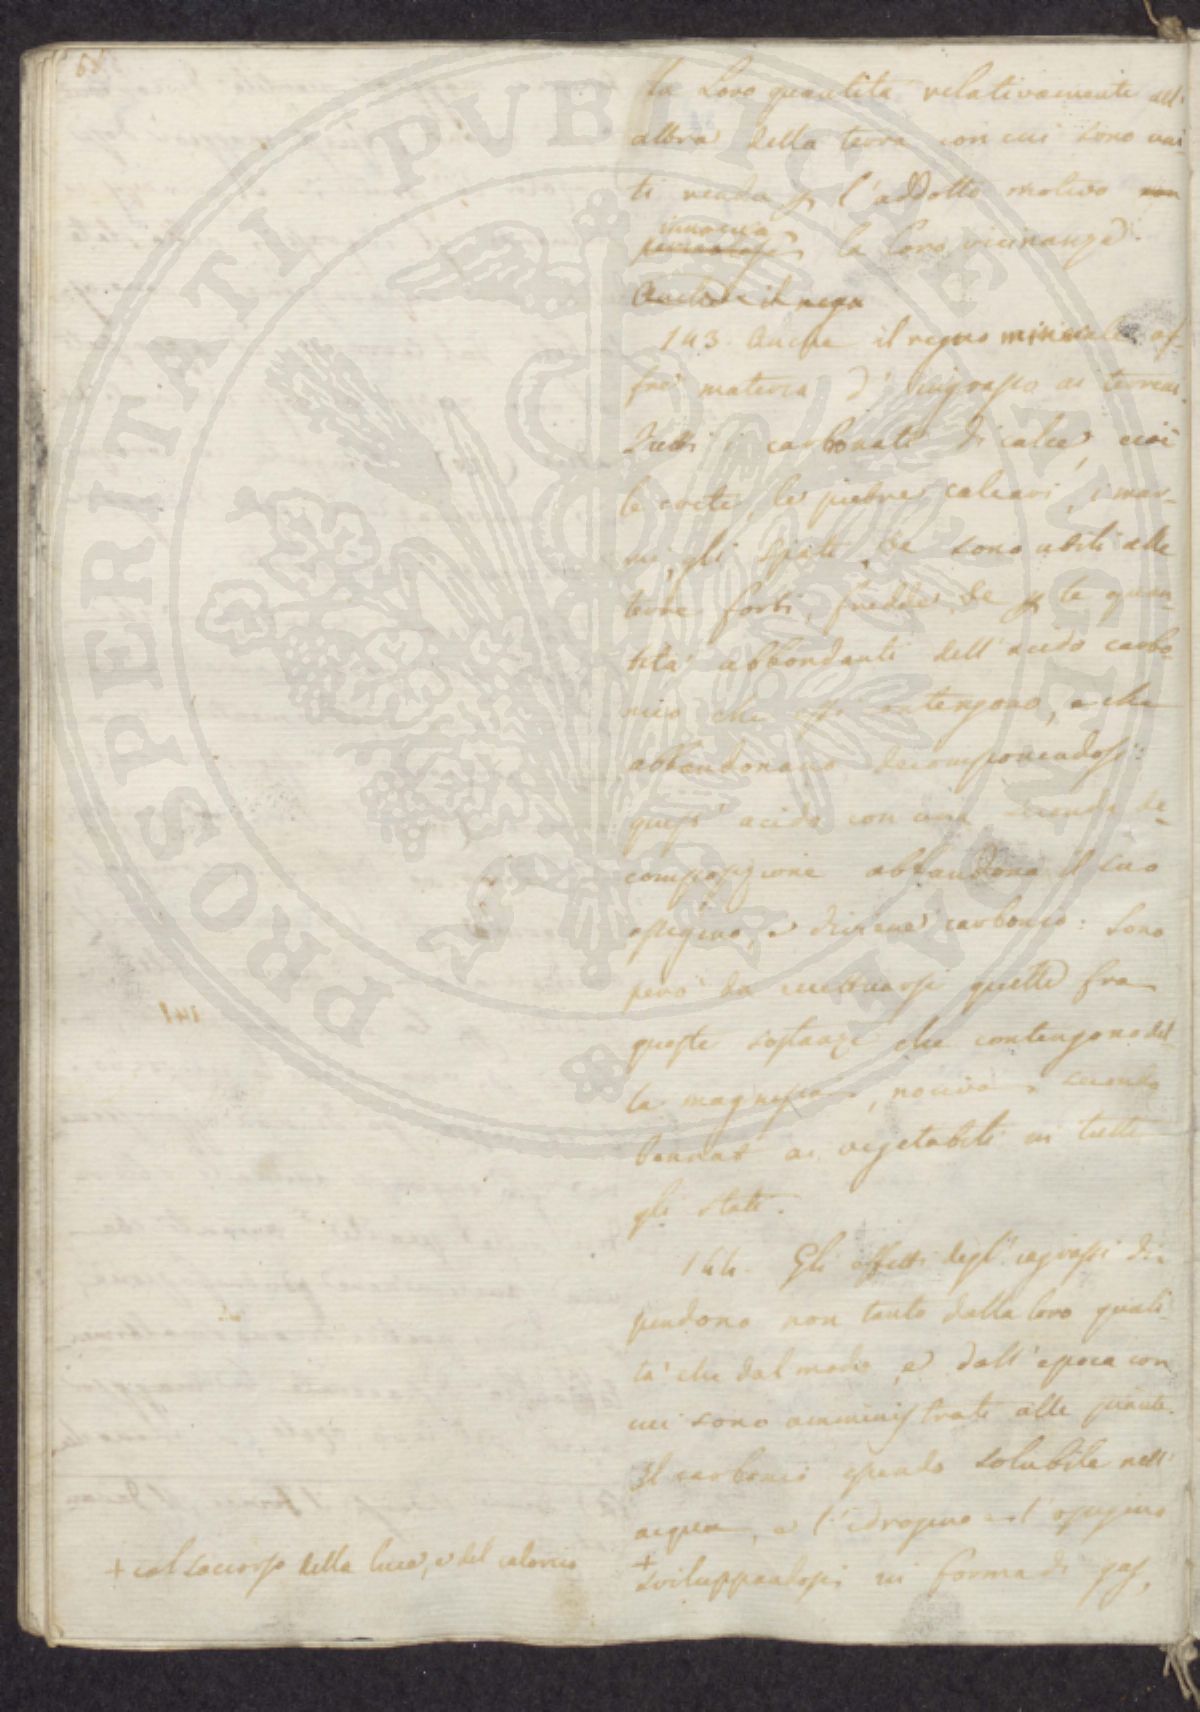 68
la loro quantità relativamente all'
altra della terra con cui sono uni
ti renda p l'addotto motivo non
innocua
pericolosa la loro vicinanza.
Anche il regn
143. Anche il regno minerale of-
fre materia d'ingrasso ai terreni.
Tutti i carbonati di calce, cioè
le crete, le pietre calcari, i mar-
mi, gli spati, &c sono utili alle
terre forti, fredde, &c p la quan-
tità abbondanti dell'acido carbo-
nico che essi contengono, e che
abbandonano decomponendosi:
quest'acido con una seconda de-
composizione abbandona il suo
ossigeno, e diviene carbonio: Sono
però da eccettuarsi quelle fra
queste sostanze che contengono del-
la magnesia, nociva secondo
Tennat ai vegetabili in tutti
gli stati.
144. Gli effetti degl'ingrassi di-
pendono non tanto dalla loro quali-
tà che dal modo, e dall'epoca con
cui sono amministrati alle piante.
Il carbonio essendo solubile nell'
acqua, e l'idrogeno e l'ossigeno
+
sviluppandosi in forma di gas,
141
+ col soccorso della luce, e del calorico
PROSPERITATI PUBLICAE AUGENDAE